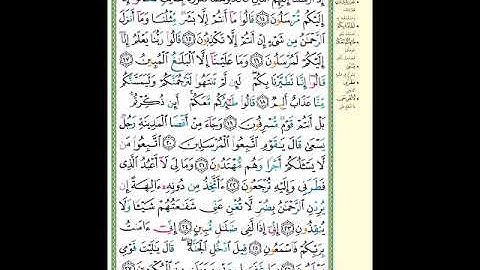 إِلَيْكُم مُّرْسَلُونَ ١٤ قَالُوا۟ مَآ أَنتُمْ إِلَّا بَشَرٌ مِّثْلُنَا وَمَآ أَنزَلَ
ٱلرَّحْمَٰنُ مِن شَىْءٍ إِنْ أَنتُمْ إِلَّا تَكْذِبُونَ ١٥ قَالُوا۟ رَبُّنَا يَعْلَمُ إِنَّآ
إِلَيْكُمْ لَمُرْسَلُونَ ١٦ وَمَا عَلَيْنَآ إِلَّا ٱلْبَلَٰغُ ٱلْمُبِينُ ١٧
قَالُوٓا۟ إِنَّا تَطَيَّرْنَا بِكُمْ لَئِن لَّمْ تَنتَهُوا۟ لَنَرْجُمَنَّكُمْ وَلَيَمَسَّنَّكُم
مِّنَّا عَذَابٌ أَلِيمٌ ١٨ قَالُوا۟ طَٰٓئِرُكُم مَّعَكُمْ أَئِن ذُكِّرْتُم
بَلْ أَنتُمْ قَوْمٌ مُّسْرِفُونَ ١٩ وَجَآءَ مِنْ أَقْصَا ٱلْمَدِينَةِ رَجُلٌ
يَسْعَىٰ قَالَ يَٰقَوْمِ ٱتَّبِعُوا۟ ٱلْمُرْسَلِينَ ٢٠ ٱتَّبِعُوا۟ مَن
لَّا يَسْـَٔلُكُمْ أَجْرًا وَهُم مُّهْتَدُونَ ٢١ وَمَا لِىَ لَآ أَعْبُدُ ٱلَّذِى
فَطَرَنِى وَإِلَيْهِ تُرْجَعُونَ ٢٢ ءَأَتَّخِذُ مِن دُونِهِۦٓ ءَالِهَةً إِن
يُرِدْنِ ٱلرَّحْمَٰنُ بِضُرٍّ لَّا تُغْنِ عَنِّى شَفَٰعَتُهُمْ شَيْـًٔا وَلَا
يُنقِذُونِ ٢٣ إِنِّىٓ إِذًا لَّفِى ضَلَٰلٍ مُّبِينٍ ٢٤ إِنِّىٓ ءَامَنتُ
بِرَبِّكُمْ فَٱسْمَعُونِ ٢٥ قِيلَ ٱدْخُلِ ٱلْجَنَّةَ قَالَ يَٰلَيْتَ قَوْمِى